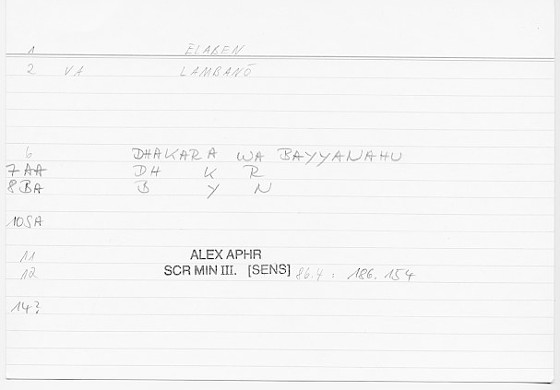 1 ELABEN
2 VA LAMBANŌ
6 DHAKARA WA BAYYANAHU
7 AA DH K R
8 BA B Y N
10 SA
11 ALEX APHR
12 SCR MIN III. [SENS] 86.4 : 186.154
14?